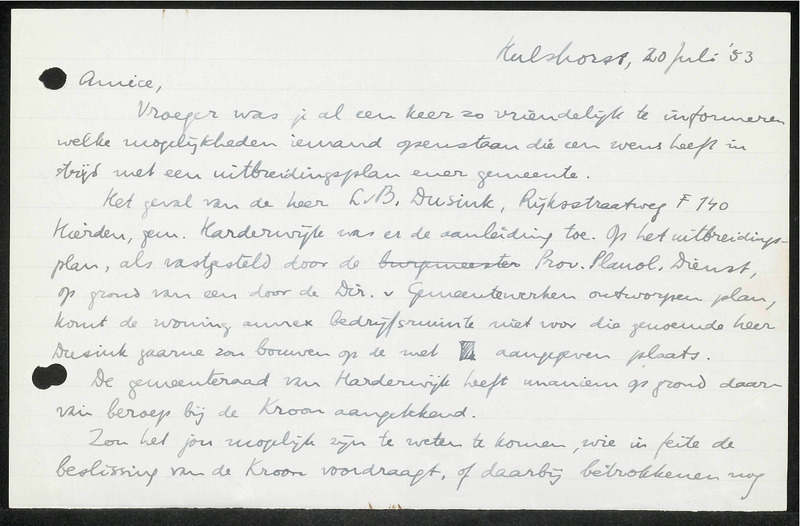 Hulshorst, 20 Juli '53
Amice,
Vroeger was je al een keer zo vriendelijk te informeren
welke mogelijkheden iemand openstaan die een wens heeft in
strijd met een uitbreidingsplan ener gemeente.
Het geval van de heer L.v.B. Dusink, Rijksstraatweg F 140
Hierden, gem. Harderwijk was er de aanleiding toe. Op het uitbreidings-
plan, als vastgesteld door de burgmeester Prov. Planol. Dienst,
op grond van een door de Dir. v Gemeentewerken ontworpen plan,
komt de woning annex bedrijfsruimte niet voor die genoemde heer
Dusink gaarne zou bouwen op de met aangegeven plaats.
De gemeenteraad van Harderwijk heeft unaniem op grond daar
van beroep bij de Kroon aangetekend.
Zou het jou mogelijk zijn te weten te komen, wie in feite de
beslissing van de Kroon voordraagt, of daarbij betrokkenen nog